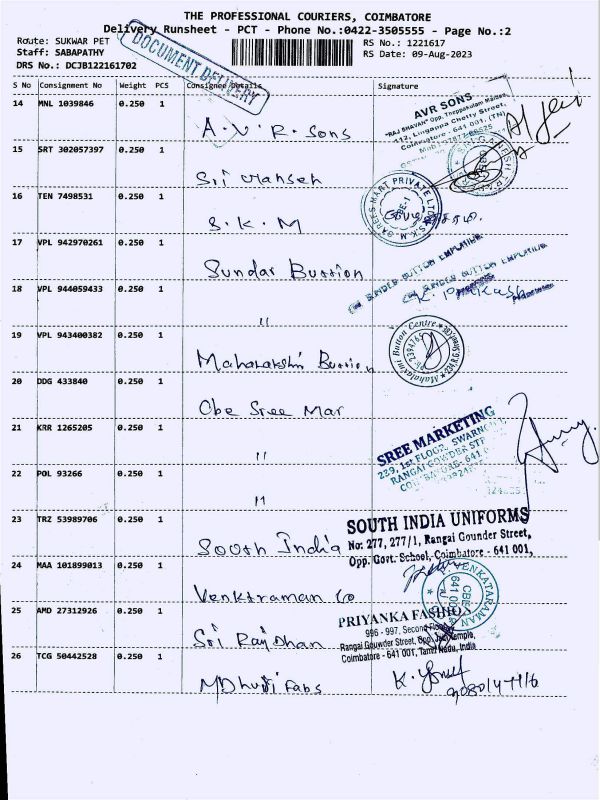 THE PROFESSIONAL COURIERS, COIMBATORE
Delivery Runsheet - PCT - Phone No.:0422-3505555 - Page No.:2
Route: SUKWAR PET
RS No.: 1221617
Staff: SABAPATHY
RS Date: 09-Aug-2023
DRS No.: DCJB122161702
DOCUMENT DELIVERY
S No Consignment No Weight PCS Consignee Details Signature
14 MNL 1039846 0.250 1
A.V.R. Sons
AVR SONS
"RAJ BHAVAN" Opp. Theppakulam Maidan,
112, Linganna Chetty Street,
Coimbatore - 641 001. (TN)
15 SRT 302057397 0.250 1
Sri
16 TEN 7498531 0.250 1
S.K.M
S.K.M. SAREES MART PRIVATE LTD.
CBE-1
17 VPL 942970261 0.250 1
Sundar Buttion
SUNDER BUTTON EMPORIUM
SUNDER BUTTON EMPORIUM
18 VPL 944059433 0.250 1
"
K. Prakash
19 VPL 943400382 0.250 1
Maharakshi Buttion
Mahalaxmi Button Centre
20 DDG 433840 0.250 1
Cbe Sree Mar
21 KRR 1265205 0.250 1
"
SREE MARKETING
229, 1st FLOOR, SWARN
RANGAI GOWDER STR
22 POL 93266 0.250 1
"
23 TRZ 53989706 0.250 1
South India
SOUTH INDIA UNIFORMS
No: 277, 277/1, Rangai Gounder Street,
Opp. Govt. School, Coimbatore - 641 001,
24 MAA 101899013 0.250 1
Venktraman Co
VENKATARAMAN
CBE
641 001
25 AMD 27312926 0.250 1
Sri Raj Dhan
PRIYANKA FASHION
996 - 997, Second Floor,
Rangai Gouwder Street, Opp. Jain Temple,
Coimbatore - 641 001, Tamil Nadu, India
26 TCG 50442528 0.250 1